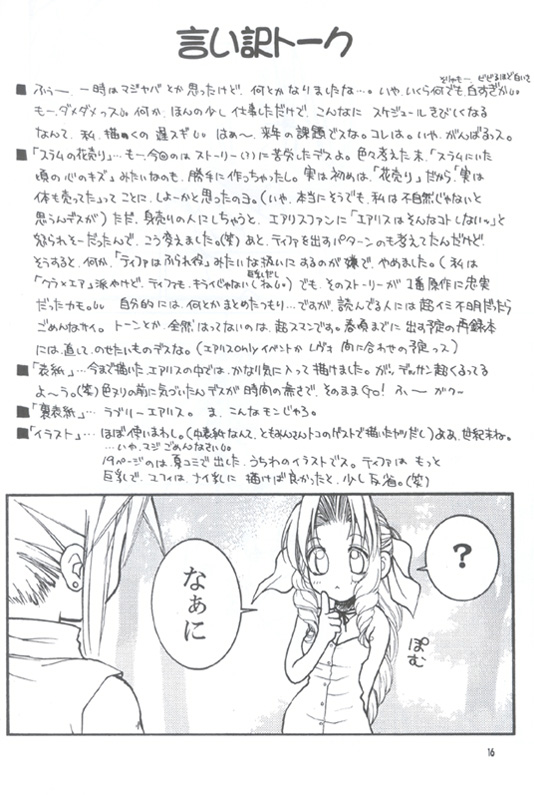 言い訳トーク
それゃもー、ビビるほど白いて
■ふぅー、一時はマジヤバとか思ったけど、何とかなりましたな…。いや、いくら何でも白すぎかい。
もー、ダメダメっス。何か、ほんの少し仕事しただけで、こんなに スケジュールきびしくなる
なんて、私、描くの 遅スギ。はぁ〜、来年の課題でスな。コレは。いや、がんばるっス。
■「スラムの花売り」…も一、今回のは ストーリー(?)に苦労したデスよ。色々考えた末、「スラムにいた
頃の心のキズ」みたいなのも、勝手に作っちゃったし。実は初めは、「花売り」だから「実は
体も売ってた」ってことに、しよーかと思ったのヨ。(いや、本当にそうでも、私は不自然じゃないと
思うんデスが) ただ、身売りの人にしちゃうと、エアリスファンに「エアリスはそんなコトしないッ」と
怒られそーだったんで、こう考えました。(笑) あと、ティファを出すパターンのも考えてたんだけど、
そうすると、何か、「ティファはふられ役」みたいな扱いにするのが嫌で、やめました。(私は
「クラ×エア」派やけど、ティファも、キライじゃない) でも、そのストーリーが 1番原作に忠実
だったカモ。 自分的には、何とかまとめたつもり…ですが、読んでる人には 超イミ不明だったら
ごめんなサイ。 トーンとか、全然はってないのは、超スマンです。春頃までに 出す予定の再録本
には、直して、のせたいものデスな。(エアリスonlyイベントか レヴォ 間に合わせの予定っス)
■「表紙」…今まで描いた、エアリスの中では、かなり気に入って描けました。が、デッサン超くるってる
よ〜う。(笑)色ヌリの前に気づいたんデスが 時間の為さで、そのままGo! ふー ガクー
■「裏表紙」… ラブリーエアリス。 ま、こんなモンじゃろ。
■「イラスト」… ほぼ使いまわし。(中表紙なんて、ともみんさんトコのゲストで描いたヤツだし) ああ、世紀末ね。
…いや、マジごめんなさい。
19ページのは、夏コミで出した、うちわのイラストでス。ティファは もっと
巨乳で、ユフィは、ナイ乳に 描けば良かったと、少し反省。(笑)
?
なぁに
ぽむ
16